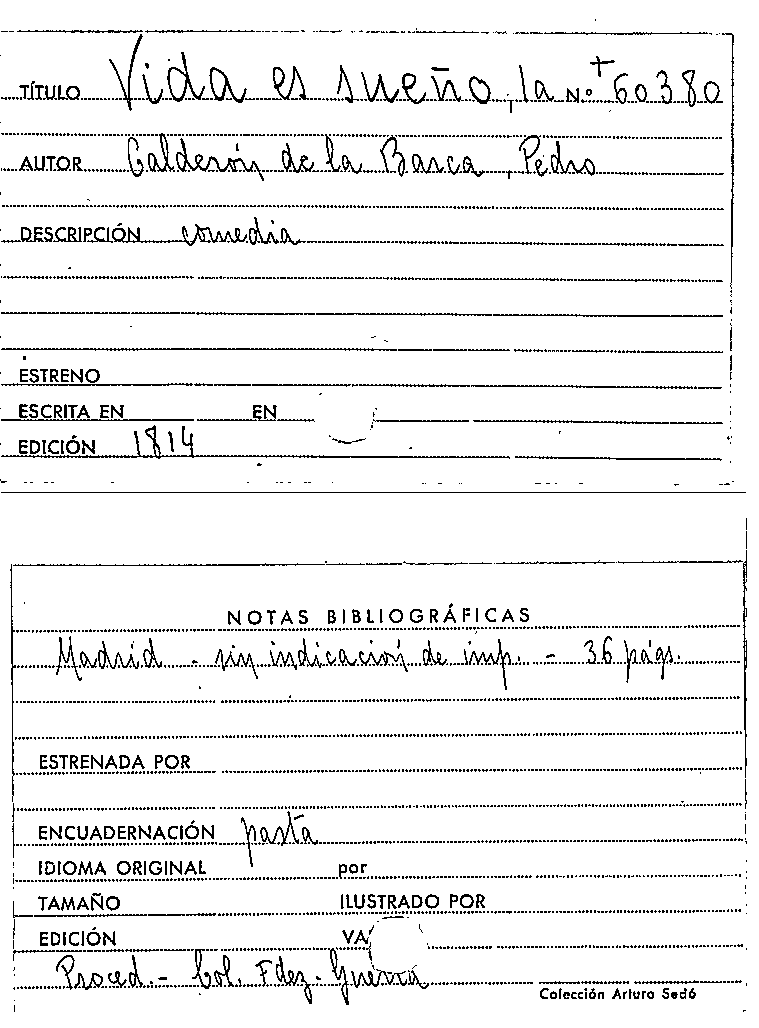 TÍTULO Vida es sueño, la N.º + 60380
AUTOR Calderón de la Barca, Pedro
DESCRIPCIÓN comedia
ESTRENO
ESCRITA EN EN
EDICIÓN 1814
NOTAS BIBLIOGRÁFICAS
Madrid - sin indicación de imp. - 36 págs.
ESTRENADA POR
ENCUADERNACIÓN pasta
IDIOMA ORIGINAL por
TAMAÑO ILUSTRADO POR
EDICIÓN VA
Proced.- Col. Fdez-Guerra
Colección Arturo Sedó